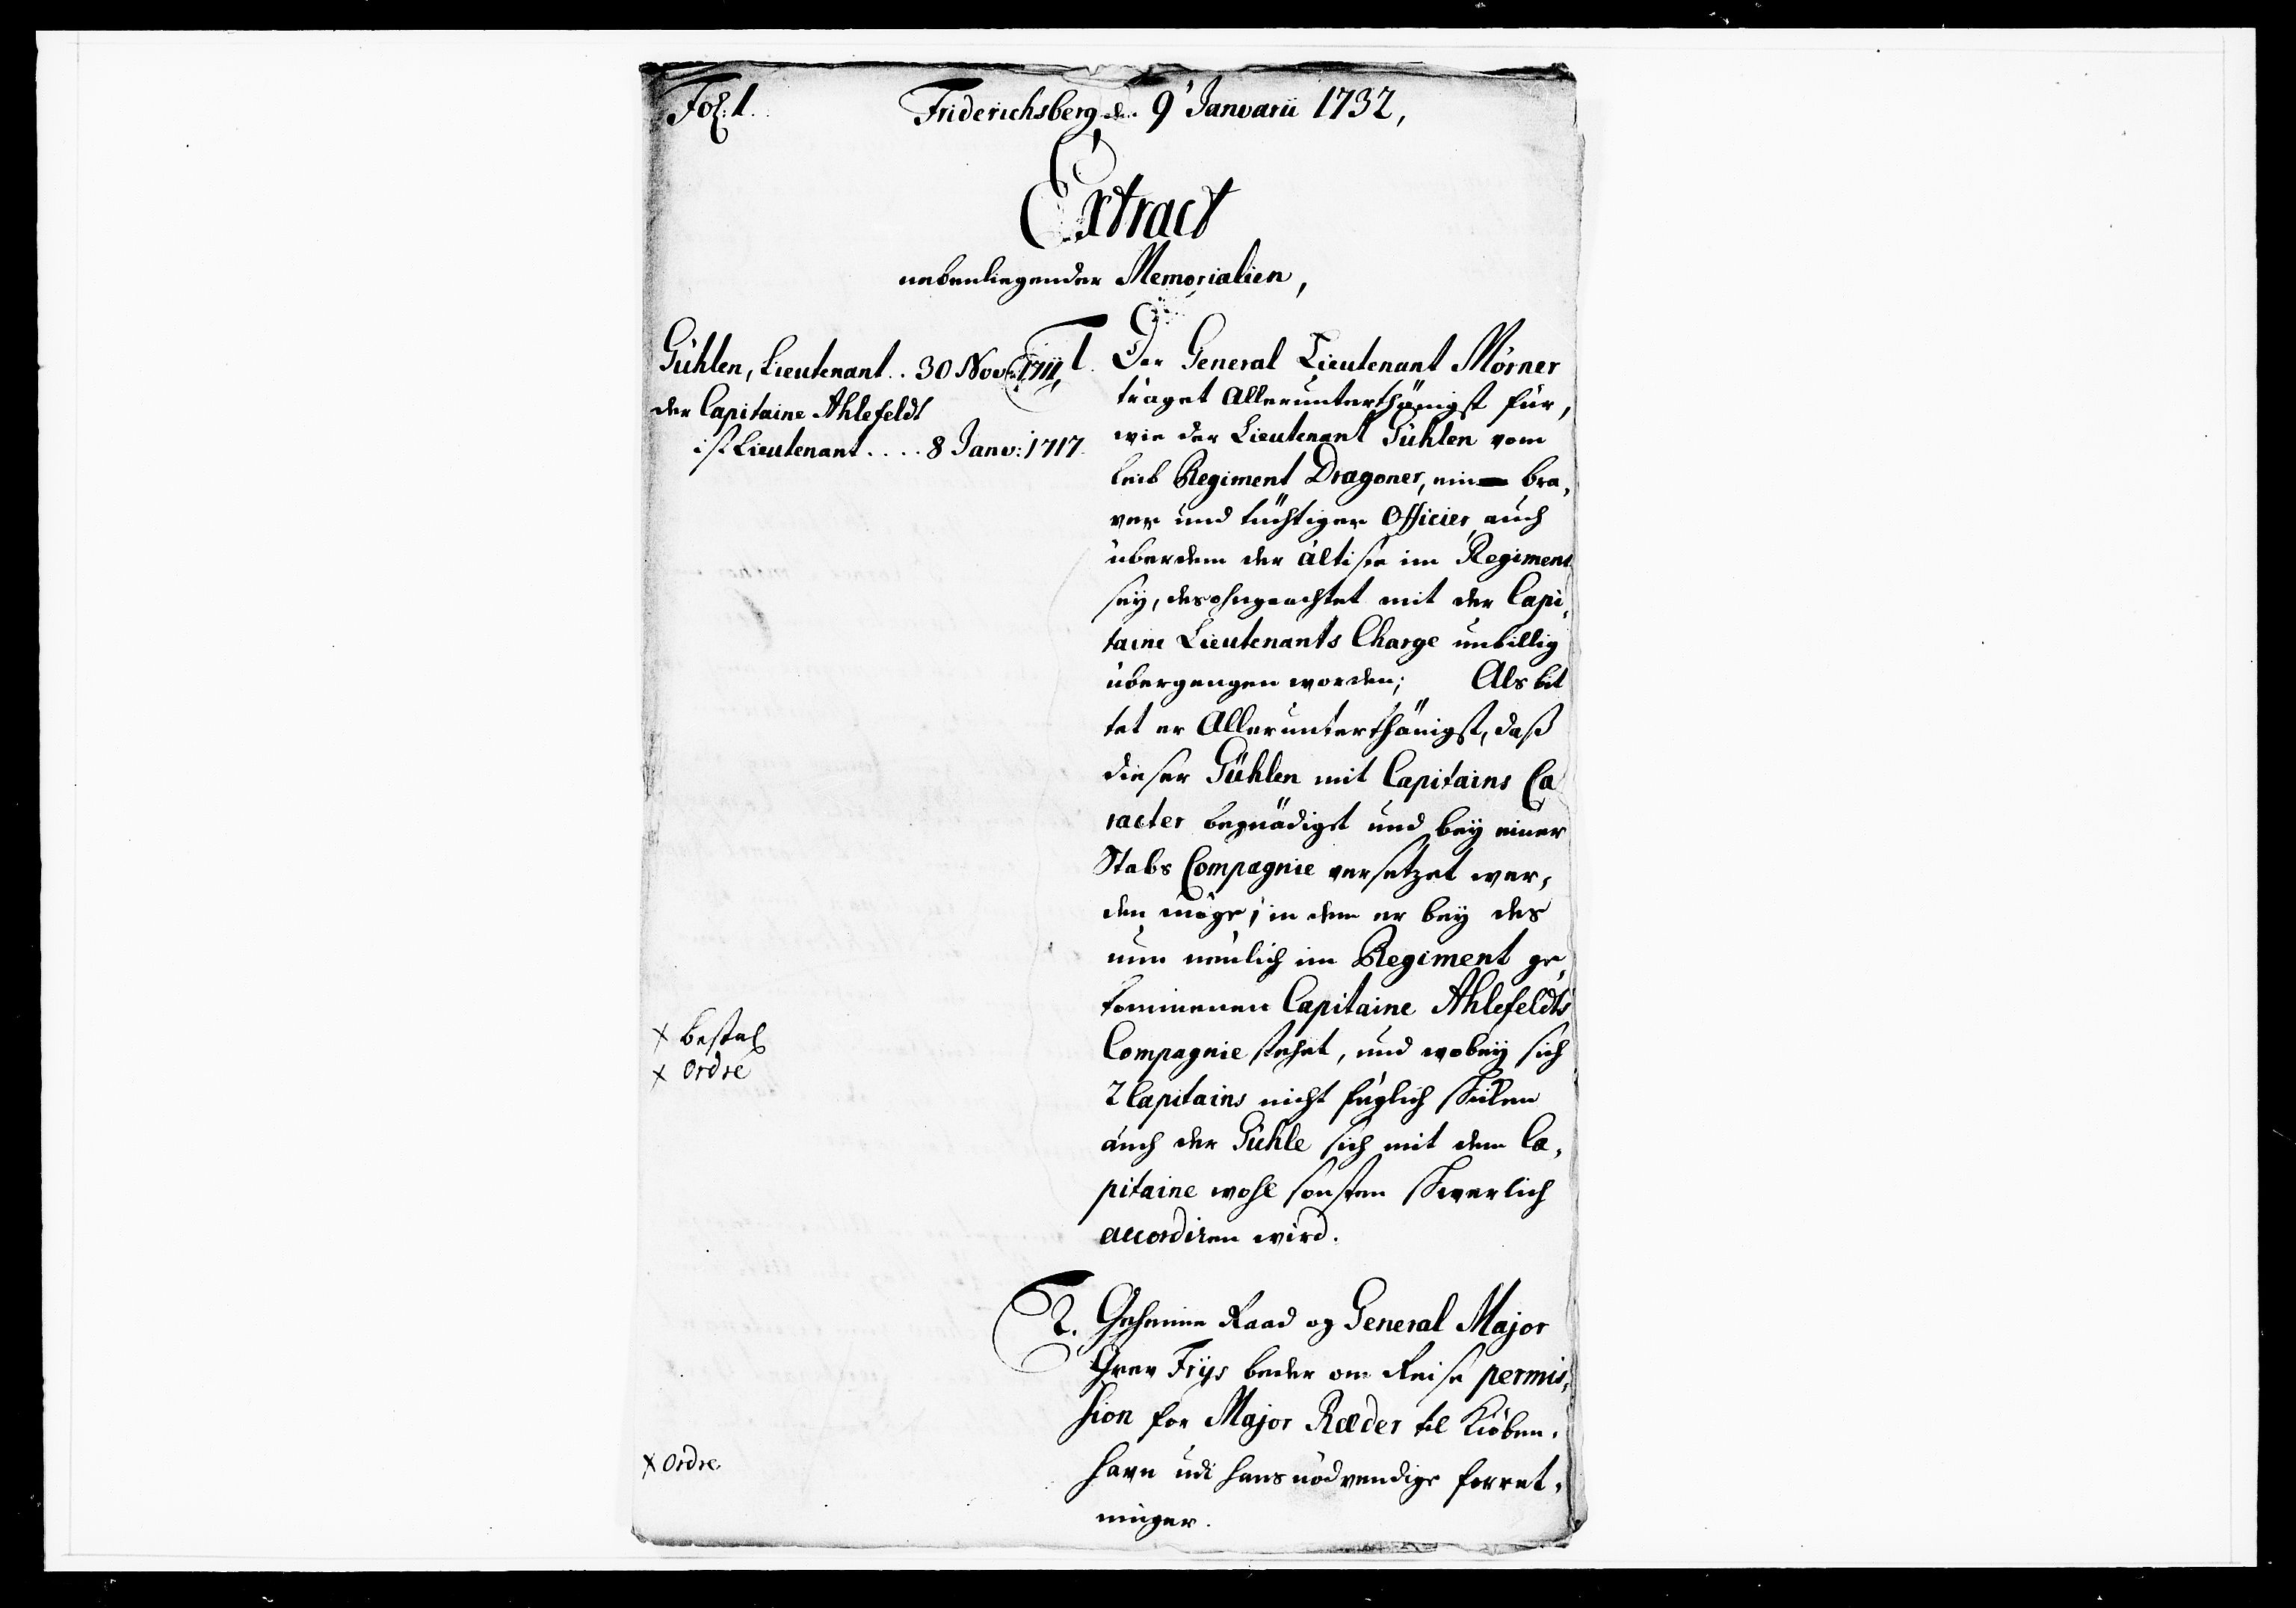 Fol: 1.
Friderichsberg d. 9' Januarii 1732,
Extract
nebenliegender Memorialien,
Gühlen, Lieutenant.. 30 Nov: 1711,
der Capitaine Ahlefeldt
ist Lieutenant.... 8 Janv: 1717.
1. Der General Lieutenant Mörner
träget Allerunterthänigst für,
wie der Lieutenant Gühlen vom
Leib Regiment Dragoner, ein bra,
ver und tüchtiger Officier, auch
überdem der ältiste im Regiment
sey, desohngeachtet mit der Capi,
taine Lieutenants Charge unbillig
übergangen worden; Als bit
tet er Allerunterthänigst, daß
dieser Gühlen mit Capitains Ca
racter begnädiget und bey einer
Stabs Compagnie versetzet wer,
den möge, in dem er bey des
nun neulich im Regiment ge,
kommenen Capitaine Ahlefeldts
Compagnie stehet, und wobey sich
2 Capitains nicht füglich schicken
auch der Gühle sich mit dem Ca,
pitaine wohl sonsten schwerlich
accordiren wird.
× Bestal
× Ordre
2. Geheime Raad og General Major
Grev Frijs beder om Reise permis,
sion for Major Ræder til Kiöben,
havn udi hans nödvendige forret,
ninger.
× Ordre